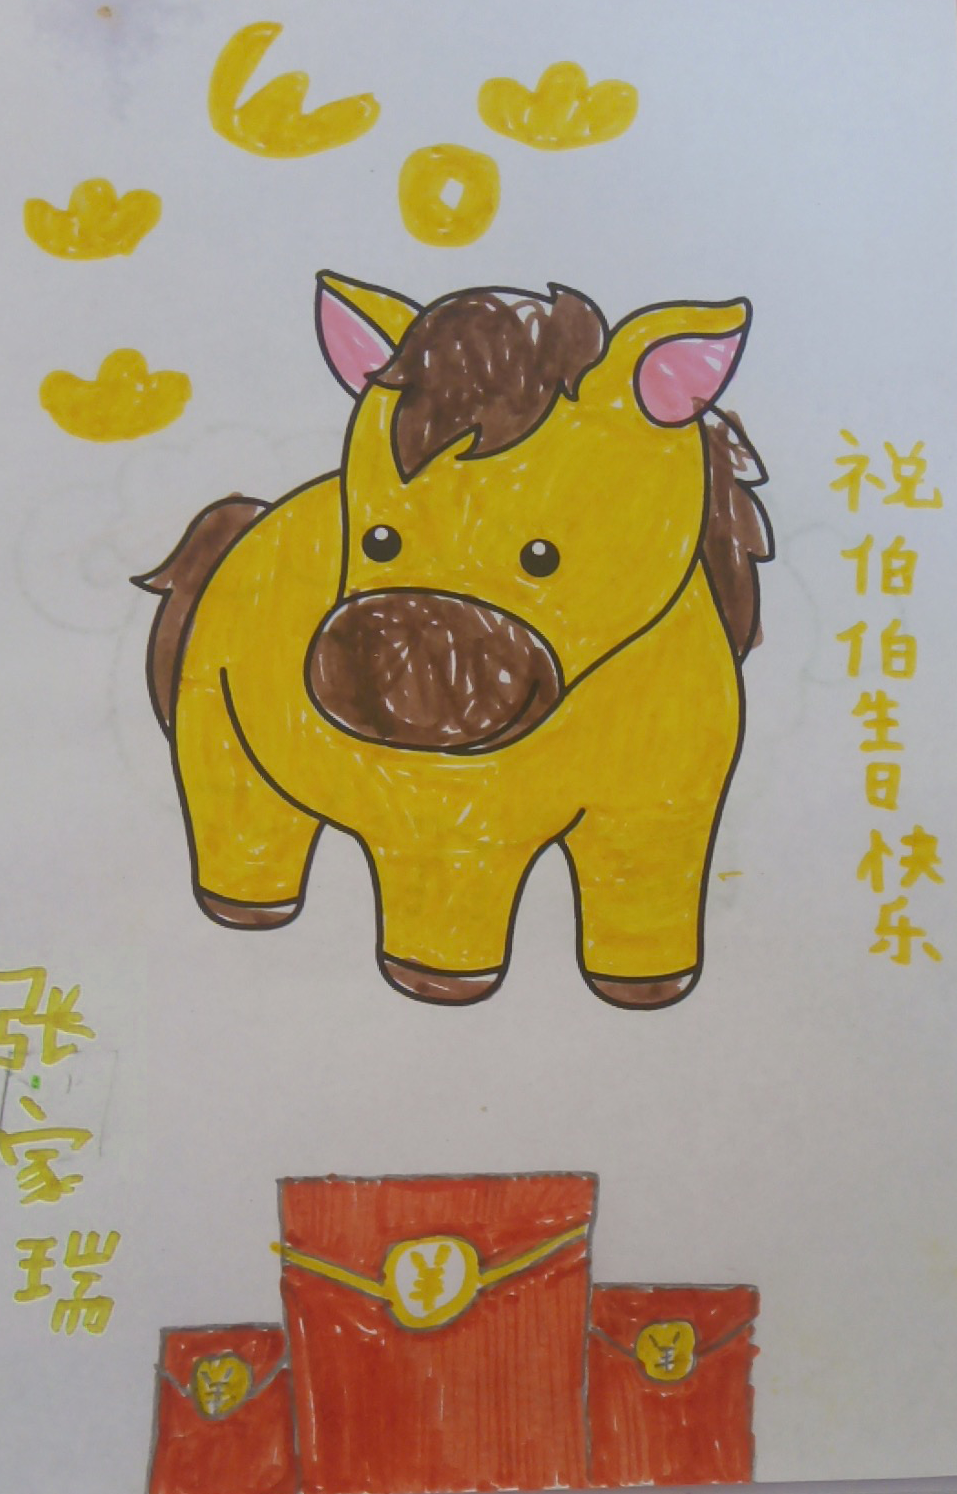 祝伯伯生日快乐
张家瑞
¥
¥
¥